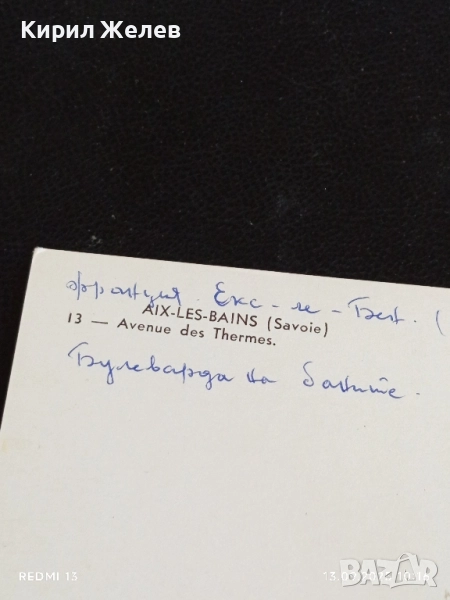 Кирил Желев
Франция. Екс-ле-Бен. (
AIX-LES-BAINS (Savoie)
13 — Avenue des Thermes.
Булеварда на баните.
REDMI 13
BAZAR